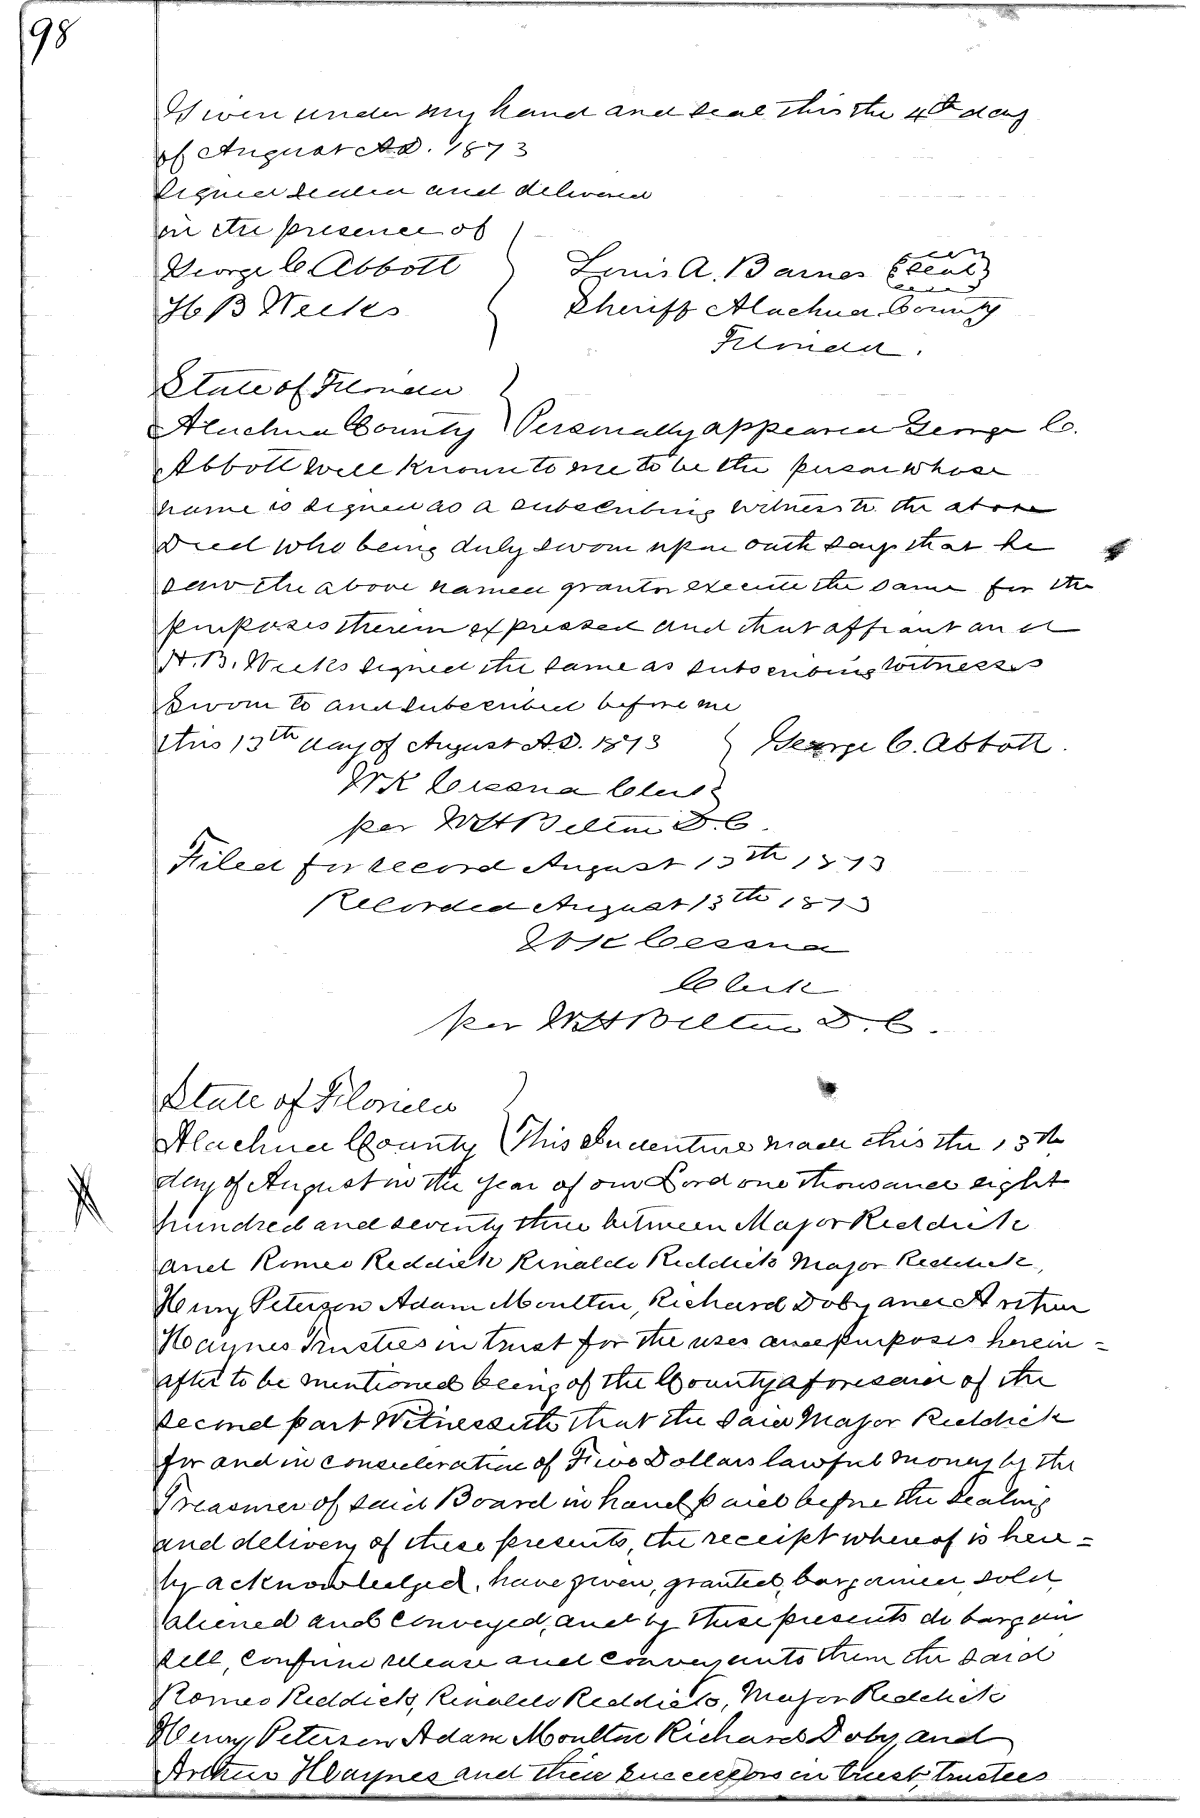 98
Given under my hand and seal this the 4th day
of August A.D. 1873
Signed sealed and delivered
in the presence of
George C Abbott } Louis A. Barnes (Seal)
H B Weeks } Sheriff Alachua County
Florida.
State of Florida }
Alachua County } Personally appeared George C.
Abbott well known to me to be the person whose
name is signed as a subscribing witness to the above
Deed who being duly sworn upon oath says that he
saw the above named grantor execute the same for the
purposes therein expressed and that affiant and
H. B. Weeks signed the same as subscribing witnesses
Sworn to and subscribed before me
this 13th day of August A.D. 1873 } George C. Abbott.
W K Cessna Clerk }
per W H Belton D.C.
Filed for record August 13th 1873
Recorded August 13th 1873
W K Cessna
Clerk
per W H Belton D.C.
State of Florida }
Alachua County } This Indenture made this the 13th
day of August in the year of our Lord one thousand eight
hundred and seventy three between Major Reddick
and Romeo Reddick Rinaldo Reddick Major Reddick,
Henry Peterson Adam Moulton, Richard Doby and Arthur
Haynes Trustees in trust for the uses and purposes herein=
after to be mentioned being of the County aforesaid of the
second part Witnesseth that the said Major Reddick
for and in consideration of Five Dollars lawful money by the
Treasurer of said Board in hand paid before the sealing
and delivery of these presents, the receipt whereof is here=
by acknowledged, have given, granted, bargained, sold,
aliened and conveyed, and by these presents do bargain
sell, confirm release and convey unto them the said
Romeo Reddick, Rinaldo Reddick, Major Reddick
Henry Peterson Adam Moulton Richard Doby and
Arthur Haynes and their successors in trust, trustees